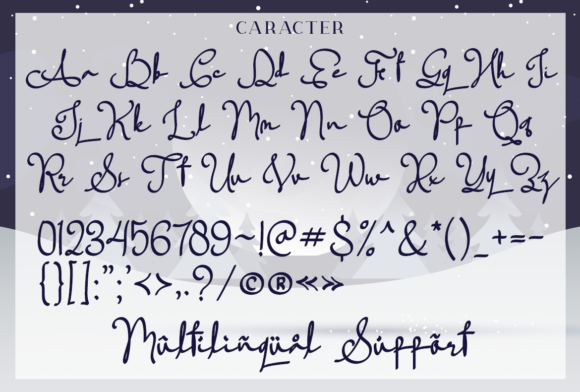 CARACTER
Aa Bb Cc Dd Ee Ff Gg Hh Ii
Jj Kk Ll Mm Nn Oo Pp Qq
Rr Ss Tt Uu Vv Ww Xx Yy Zz
0123456789~!@#$%^&*()_+=-
{}[]:";'<>,.?/©®«»
Mûltilïñqüål Súppõrt